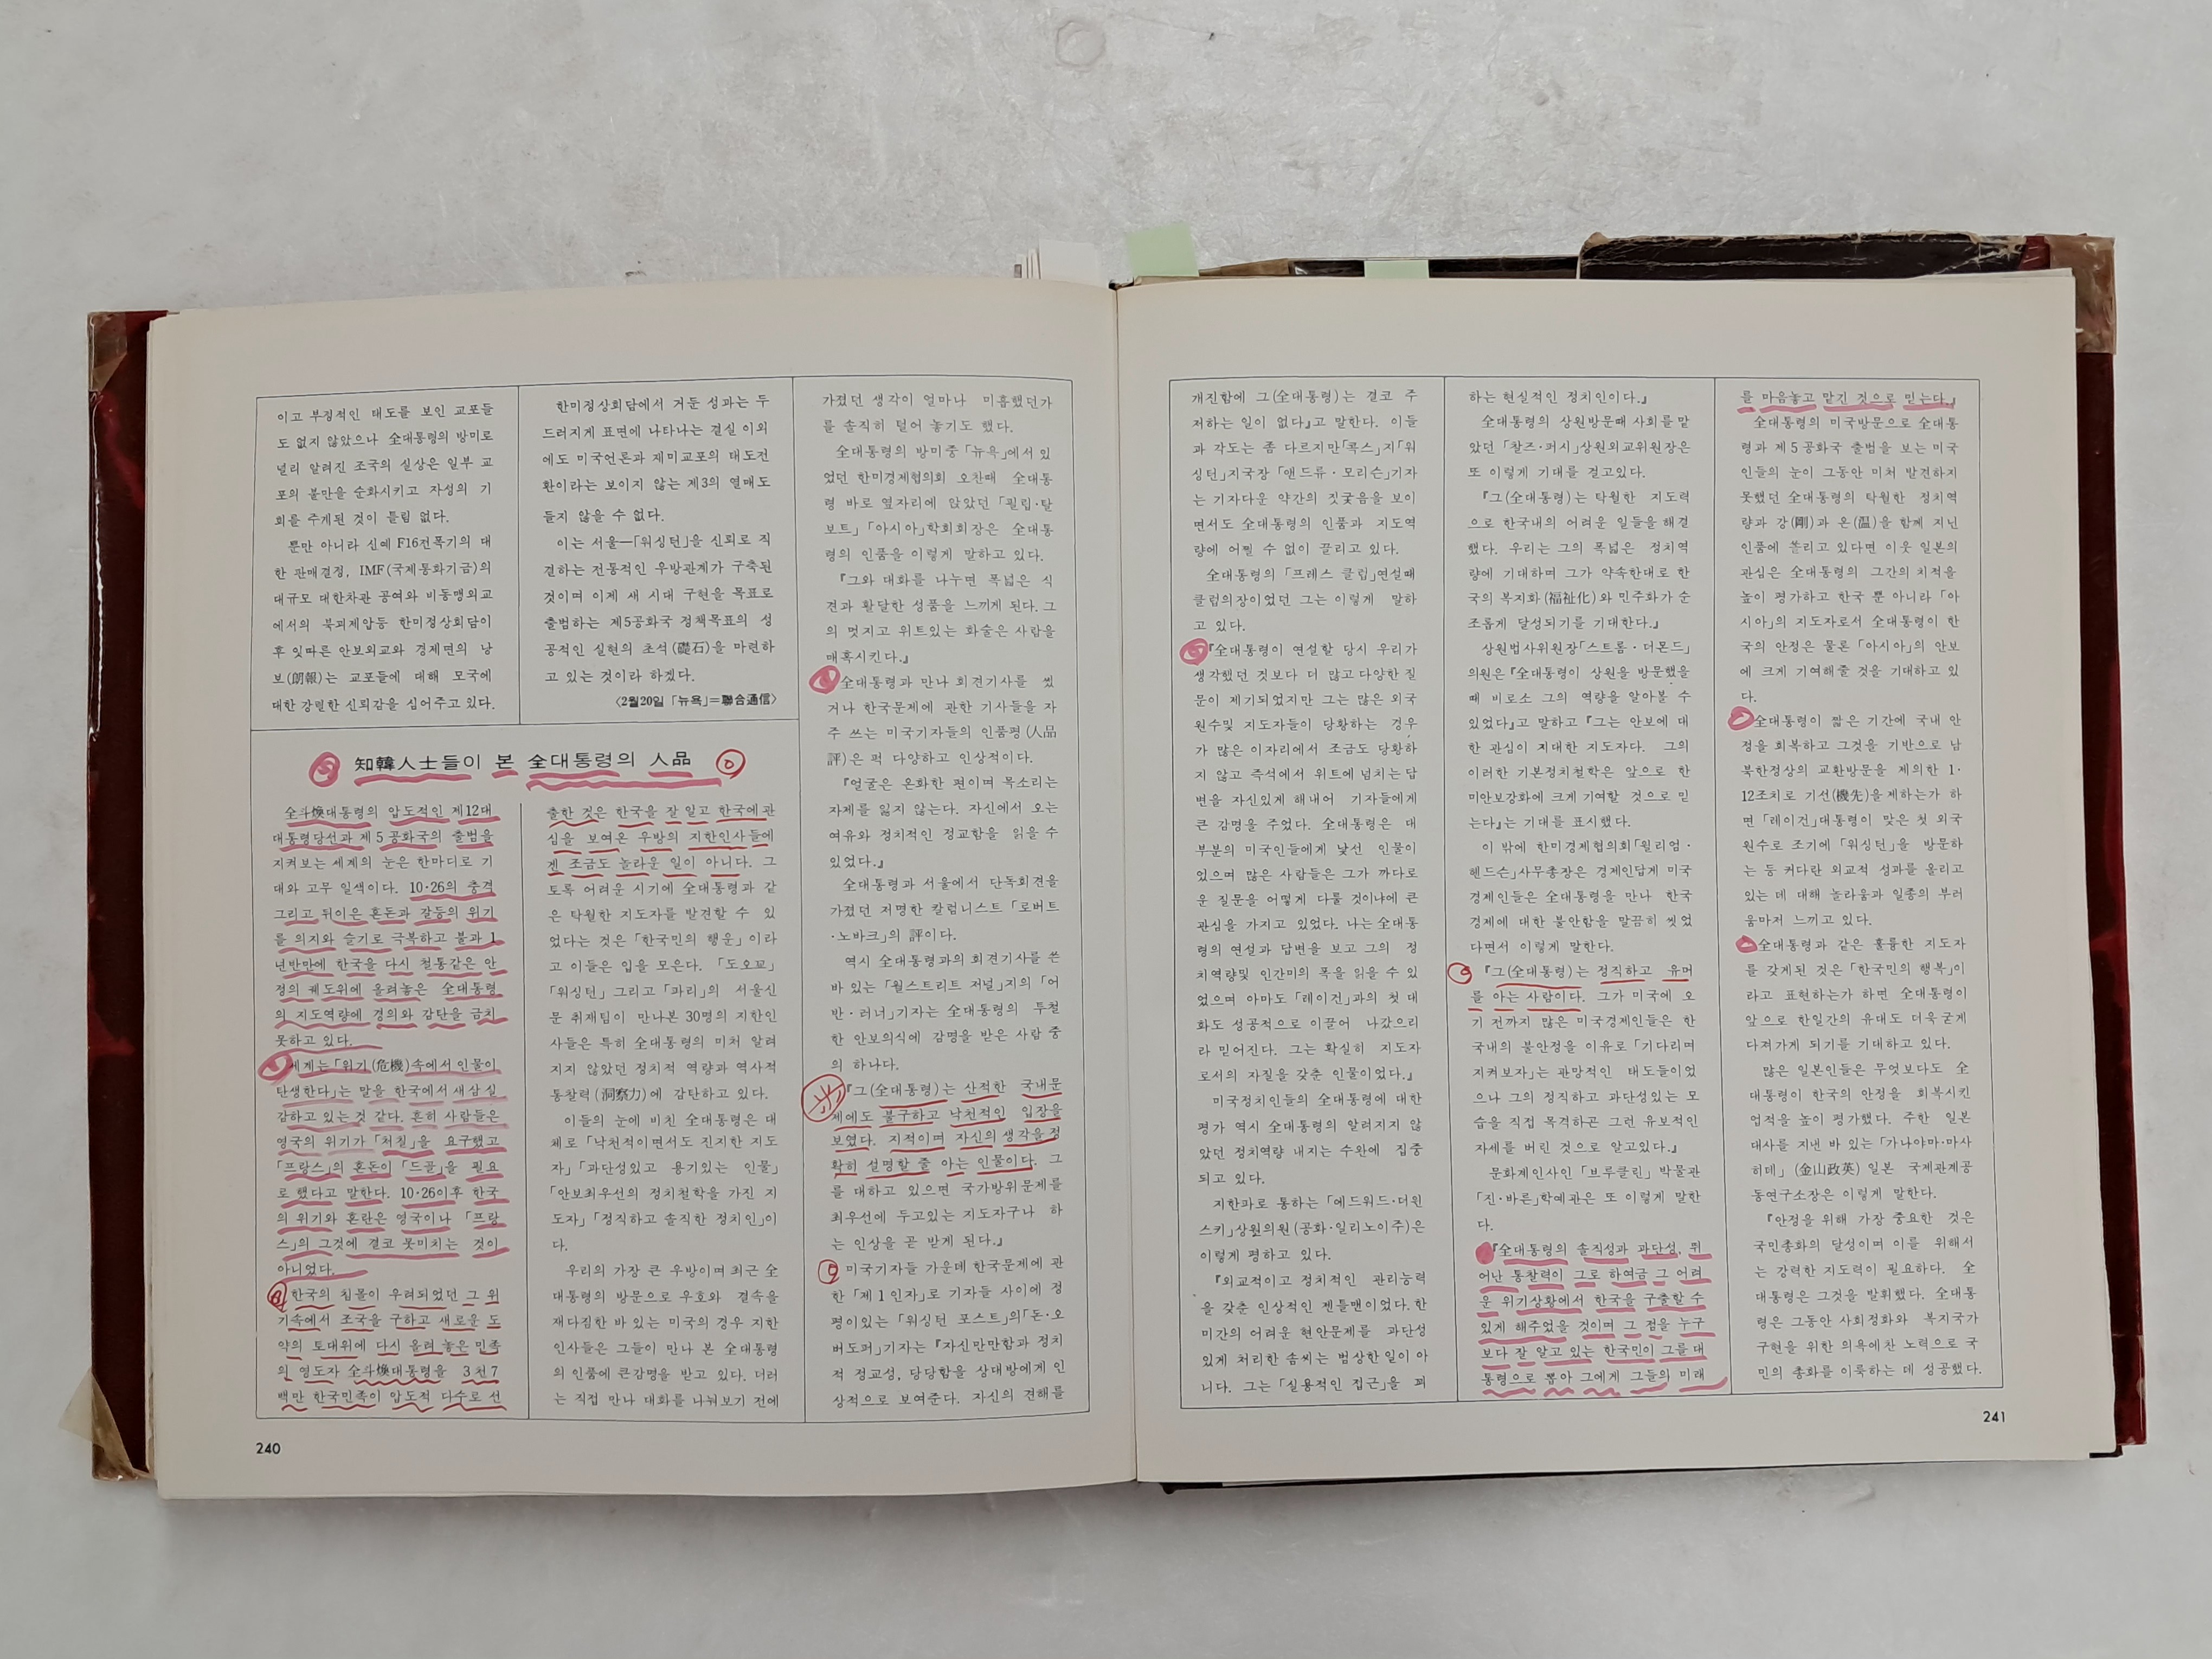 이고 부정적인 태도를 보인 교포들
도 없지 않았으나 全대통령의 방미로
널리 알려진 조국의 실상은 일부 교
포의 불만을 순화시키고 자성의 기
회를 주게된 것이 틀림 없다.
뿐만 아니라 신예 F16전폭기의 대
한 판매결정, IMF(국제통화기금)의
대규모 대한차관 공여와 비동맹외교
에서의 북괴제압등 한미정상회담이
후 잇따른 안보외교와 경제면의 낭
보(朗報)는 교포들에 대해 모국에
대한 강렬한 신뢰감을 심어주고 있다.
한미정상회담에서 거둔 성과는 두
드러지게 표면에 나타나는 결실 이외
에도 미국언론과 재미교포의 태도전
환이라는 보이지 않는 제3의 열매도
들지 않을 수 없다.
이는 서울—「워싱턴」을 신뢰로 직
결하는 전통적인 우방관계가 구축된
것이며 이제 새 시대 구현을 목표로
출범하는 제5공화국 정책목표의 성
공적인 실현의 초석(礎石)을 마련하
고 있는 것이라 하겠다.
〈2월20일 「뉴욕」=聯合通信〉
知韓人士들이 본 全대통령의 人品
全斗煥대통령의 압도적인 제12대
대통령당선과 제5공화국의 출범을
지켜보는 세계의 눈은 한마디로 기
대와 고무 일색이다. 10·26의 충격
그리고 뒤이은 혼돈과 갈등의 위기
를 의지와 슬기로 극복하고 불과 1
년반만에 한국을 다시 철통같은 안
정의 궤도위에 올려놓은 全대통령
의 지도역량에 경의와 감탄을 금치
못하고 있다.
세계는 「위기(危機)속에서 인물이
탄생한다」는 말을 한국에서 새삼 실
감하고 있는것 같다. 흔히 사람들은
영국의 위기가 「처칠」을 요구했고
「프랑스」의 혼돈이 「드골」을 필요
로 했다고 말한다. 10·26이후 한국
의 위기와 혼란은 영국이나 「프랑
스」의 그것에 결코 못미치는 것이
아니었다.
한국의 침몰이 우려되었던 그 위
기속에서 조국을 구하고 새로운 도
약의 토대위에 다시 올려 놓은 민족
의 영도자 全斗煥대통령을 3천7
백만 한국민족이 압도적 다수로 선
출한 것은 한국을 잘 알고 한국에 관
심을 보여온 우방의 지한인사들에
겐 조금도 놀라운 일이 아니다. 그
토록 어려운 시기에 全대통령과 같
은 탁월한 지도자를 발견할 수 있
었다는 것은 「한국민의 행운」이라
고 이들은 입을 모은다. 「도오꾜」
「워싱턴」 그리고 「파리」의 서울신
문 취재팀이 만나본 30명의 지한인
사들은 특히 全대통령의 미처 알려
지지 않았던 정치적 역량과 역사적
통찰력(洞察力)에 감탄하고 있다.
이들의 눈에 비친 全대통령은 대
체로 「낙천적이면서도 진지한 지도
자」「과단성있고 용기있는 인물」
「안보최우선의 정치철학을 가진 지
도자」「정직하고 솔직한 정치인」이
다.
우리의 가장 큰 우방이며 최근 全
대통령의 방문으로 우호와 결속을
재다짐한 바 있는 미국의 경우 지한
인사들은 그들이 만나 본 全대통령
의 인품에 큰감명을 받고 있다. 더러
는 직접 만나 대화를 나눠보기 전에
가졌던 생각이 얼마나 미흡했던가
를 솔직히 털어 놓기도 했다.
全대통령의 방미중 「뉴욕」에서 있
었던 한미경제협의회 오찬때 全대통
령 바로 옆자리에 앉았던 「필립·탈
보트」「아시아」학회회장은 全대통
령의 인품을 이렇게 말하고 있다.
『그와 대화를 나누면 폭넓은 식
견과 활달한 성품을 느끼게 된다. 그
의 멋지고 위트있는 화술은 사람을
매혹시킨다.』
全대통령과 만나 회견기사를 썼
거나 한국문제에 관한 기사들을 자
주 쓰는 미국기자들의 인품평(人品
評)은 퍽 다양하고 인상적이다.
『얼굴은 온화한 편이며 목소리는
자제를 잃지 않는다. 자신에서 오는
여유와 정치적인 정교함을 읽을 수
있었다.』
全대통령과 서울에서 단독회견을
가졌던 저명한 칼럼니스트 「로버트
·노바크」의 評이다.
역시 全대통령과의 회견기사를 쓴
바 있는 「월스트리트 저널」지의 「어
반·러너」기자는 全대통령의 투철
한 안보의식에 감명을 받은 사람 중
의 하나다.
『그(全대통령)는 산적한 국내문
제에도 불구하고 낙천적인 입장을
보였다. 지적이며 자신의 생각을 정
확히 설명할 줄 아는 인물이다. 그
를 대하고 있으면 국가방위문제를
최우선에 두고있는 지도자구나 하
는 인상을 곧 받게 된다.』
미국기자들 가운데 한국문제에 관
한 「제1인자」로 기자들 사이에 정
평이있는 「워싱턴 포스트」의「돈·오
버도퍼」기자는 『자신만만함과 정치
적 정교성, 당당함을 상대방에게 인
상적으로 보여준다. 자신의 견해를
240
개진함에 그(全대통령)는 결코 주
저하는 일이 없다』고 말한다. 이들
과 각도는 좀 다르지만「콕스」지「워
싱턴」지국장 「앤드류·모리슨」기자
는 기자다운 약간의 짓궂음을 보이
면서도 全대통령의 인품과 지도역
량에 어쩔 수 없이 끌리고 있다.
全대통령의 「프레스 클럽」연설때
클럽의장이었던 그는 이렇게 말하
고 있다.
『全대통령이 연설할 당시 우리가
생각했던 것보다 더 많고 다양한 질
문이 제기되었지만 그는 많은 외국
원수및 지도자들이 당황하는 경우
가 많은 이자리에서 조금도 당황하
지 않고 즉석에서 위트에 넘치는 답
변을 자신있게 해내어 기자들에게
큰 감명을 주었다. 全대통령은 대
부분의 미국인들에게 낯선 인물이
었으며 많은 사람들은 그가 까다로
운 질문을 어떻게 다룰 것이냐에 큰
관심을 가지고 있었다. 나는 全대통
령의 연설과 답변을 보고 그의 정
치역량및 인간미의 폭을 읽을 수 있
었으며 아마도 「레이건」과의 첫 대
화도 성공적으로 이끌어 나갔으리
라 믿어진다. 그는 확실히 지도자
로서의 자질을 갖춘 인물이었다.』
미국정치인들의 全대통령에 대한
평가 역시 全대통령의 알려지지 않
았던 정치역량 내지는 수완에 집중
되고 있다.
지한파로 통하는 「에드워드·더윈
스키」상원의원(공화·일리노이주)은
이렇게 평하고 있다.
『외교적이고 정치적인 관리능력
을 갖춘 인상적인 젠틀맨이었다. 한
미간의 어려운 현안문제를 과단성
있게 처리한 솜씨는 범상한 일이 아
니다. 그는 「실용적인 접근」을 꾀
하는 현실적인 정치인이다.』
全대통령의 상원방문때 사회를 맡
았던 「찰즈·퍼시」상원외교위원장은
또 이렇게 기대를 걸고있다.
『그(全대통령)는 탁월한 지도력
으로 한국내의 어려운 일들을 해결
했다. 우리는 그의 폭넓은 정치역
량에 기대하며 그가 약속한대로 한
국의 복지화(福祉化)와 민주화가 순
조롭게 달성되기를 기대한다.』
상원법사위원장「스트롬·더몬드」
의원은『全대통령이 상원을 방문했을
때 비로소 그의 역량을 알아볼 수
있었다』고 말하고 『그는 안보에 대
한 관심이 지대한 지도자다. 그의
이러한 기본정치철학은 앞으로 한
미안보강화에 크게 기여할 것으로 믿
는다』는 기대를 표시했다.
이 밖에 한미경제협의회「윌리엄·
헨드슨」사무총장은 경제인답게 미국
경제인들은 全대통령을 만나 한국
경제에 대한 불안함을 말끔히 씻었
다면서 이렇게 말한다.
『그(全대통령)는 정직하고 유머
를 아는 사람이다. 그가 미국에 오
기 전까지 많은 미국경제인들은 한
국내의 불안정을 이유로 「기다리며
지켜보자」는 관망적인 태도들이었
으나 그의 정직하고 과단성있는 모
습을 직접 목격하곤 그런 유보적인
자세를 버린 것으로 알고있다.』
문화계인사인 「브루클린」 박물관
「진·바른」학예관은 또 이렇게 말한
다.
『全대통령의 솔직성과 과단성, 뛰
어난 통찰력이 그로 하여금 그 어려
운 위기상황에서 한국을 구출할 수
있게 해주었을 것이며 그 점을 누구
보다 잘 알고 있는 한국민이 그를 대
통령으로 뽑아 그에게 그들의 미래
를 마음놓고 맡긴 것으로 믿는다.』
全대통령의 미국방문으로 全대통
령과 제5공화국 출범을 보는 미국
인들의 눈이 그동안 미처 발견하지
못했던 全대통령의 탁월한 정치역
량과 강(剛)과 온(温)을 함께 지닌
인품에 쏠리고 있다면 이웃 일본의
관심은 全대통령의 그간의 치적을
높이 평가하고 한국 뿐 아니라 「아
시아」의 지도자로서 全대통령이 한
국의 안정은 물론 「아시아」의 안보
에 크게 기여해줄 것을 기대하고 있
다.
全대통령이 짧은 기간에 국내 안
정을 회복하고 그것을 기반으로 남
북한정상의 교환방문을 제의한 1·
12조치로 기선(機先)을 제하는가 하
면 「레이건」대통령이 맞은 첫 외국
원수로 조기에 「워싱턴」을 방문하
는 등 커다란 외교적 성과를 올리고
있는 데 대해 놀라움과 일종의 부러
움마저 느끼고 있다.
全대통령과 같은 훌륭한 지도자
를 갖게된 것은 「한국민의 행복」이
라고 표현하는가 하면 全대통령이
앞으로 한일간의 유대도 더욱 굳게
다져가게 되기를 기대하고 있다.
많은 일본인들은 무엇보다도 全
대통령이 한국의 안정을 회복시킨
업적을 높이 평가했다. 주한 일본
대사를 지낸 바 있는 「가나야마·마사
히데」(金山政英) 일본 국제관계공
동연구소장은 이렇게 말한다.
『안정을 위해 가장 중요한 것은
국민총화의 달성이며 이를 위해서
는 강력한 지도력이 필요하다. 全
대통령은 그것을 발휘했다. 全대통
령은 그동안 사회정화와 복지국가
구현을 위한 의욕에찬 노력으로 국
민의 총화를 이룩하는 데 성공했다.
241